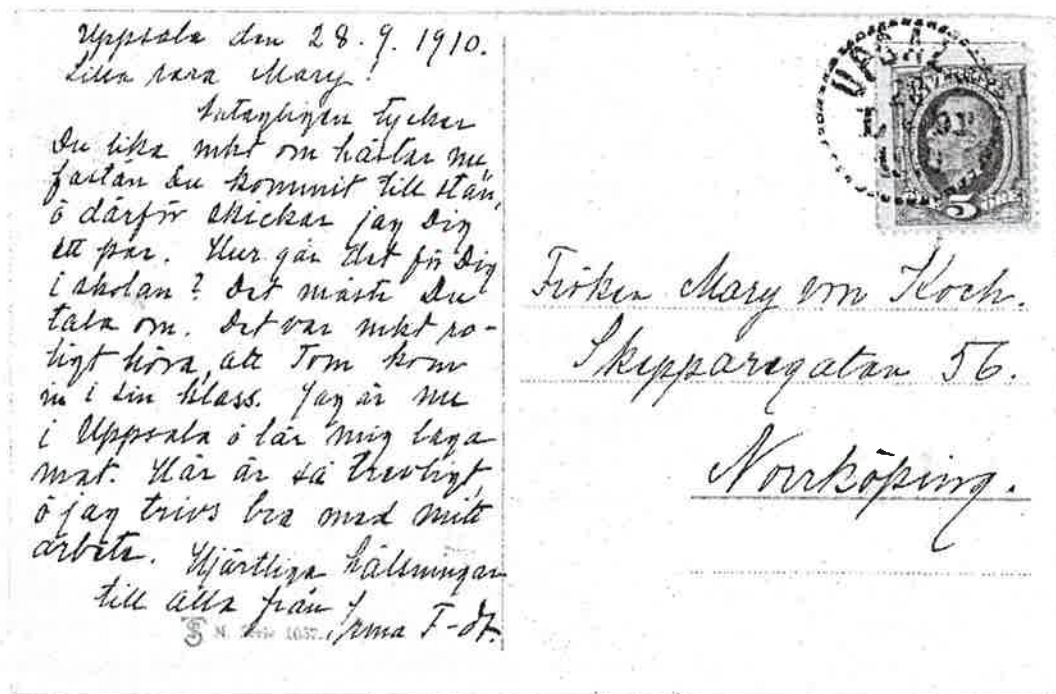 Uppsala den 28.9.1910.
Lilla rara Mary!
Antagligen tycker
Du lika mkt om hästar nu
fastän Du kommit till stan,
o därför skickar jag Dig
ett par. Hur går det för Dig
i skolan? Det måste Du
tala om. Det var mkt ro-
ligt höra, att Tom kom
in i sin klass. Jag är nu
i Uppsala o lär mig laga
mat. Här är så trevligt,
o jag trivs bra med mitt
arbete. Hjärtliga hälsningar
till alla från Irma F-dt.
Serie 1057.
5 ÖRE
Fröken Mary von Koch.
Skepparegatan 56.
Norrköping.